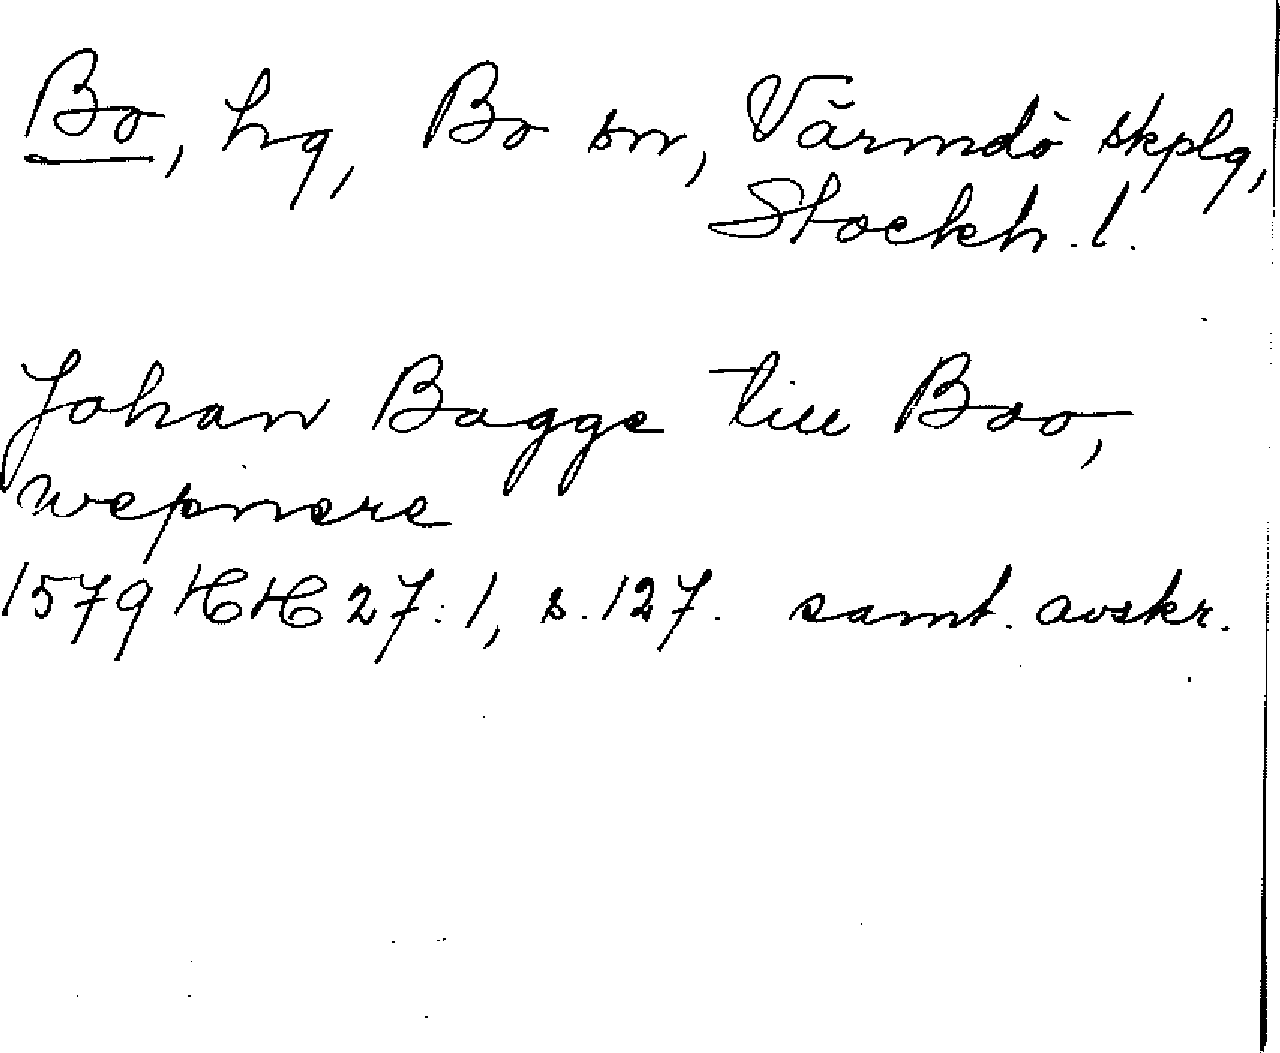 Bo, hg, Bo sn, Värmdö skplg,
Stockh. l.
Johan Bagge till Boo,
wepnere
1579 HH 27:1, s. 127. samt. avskr.